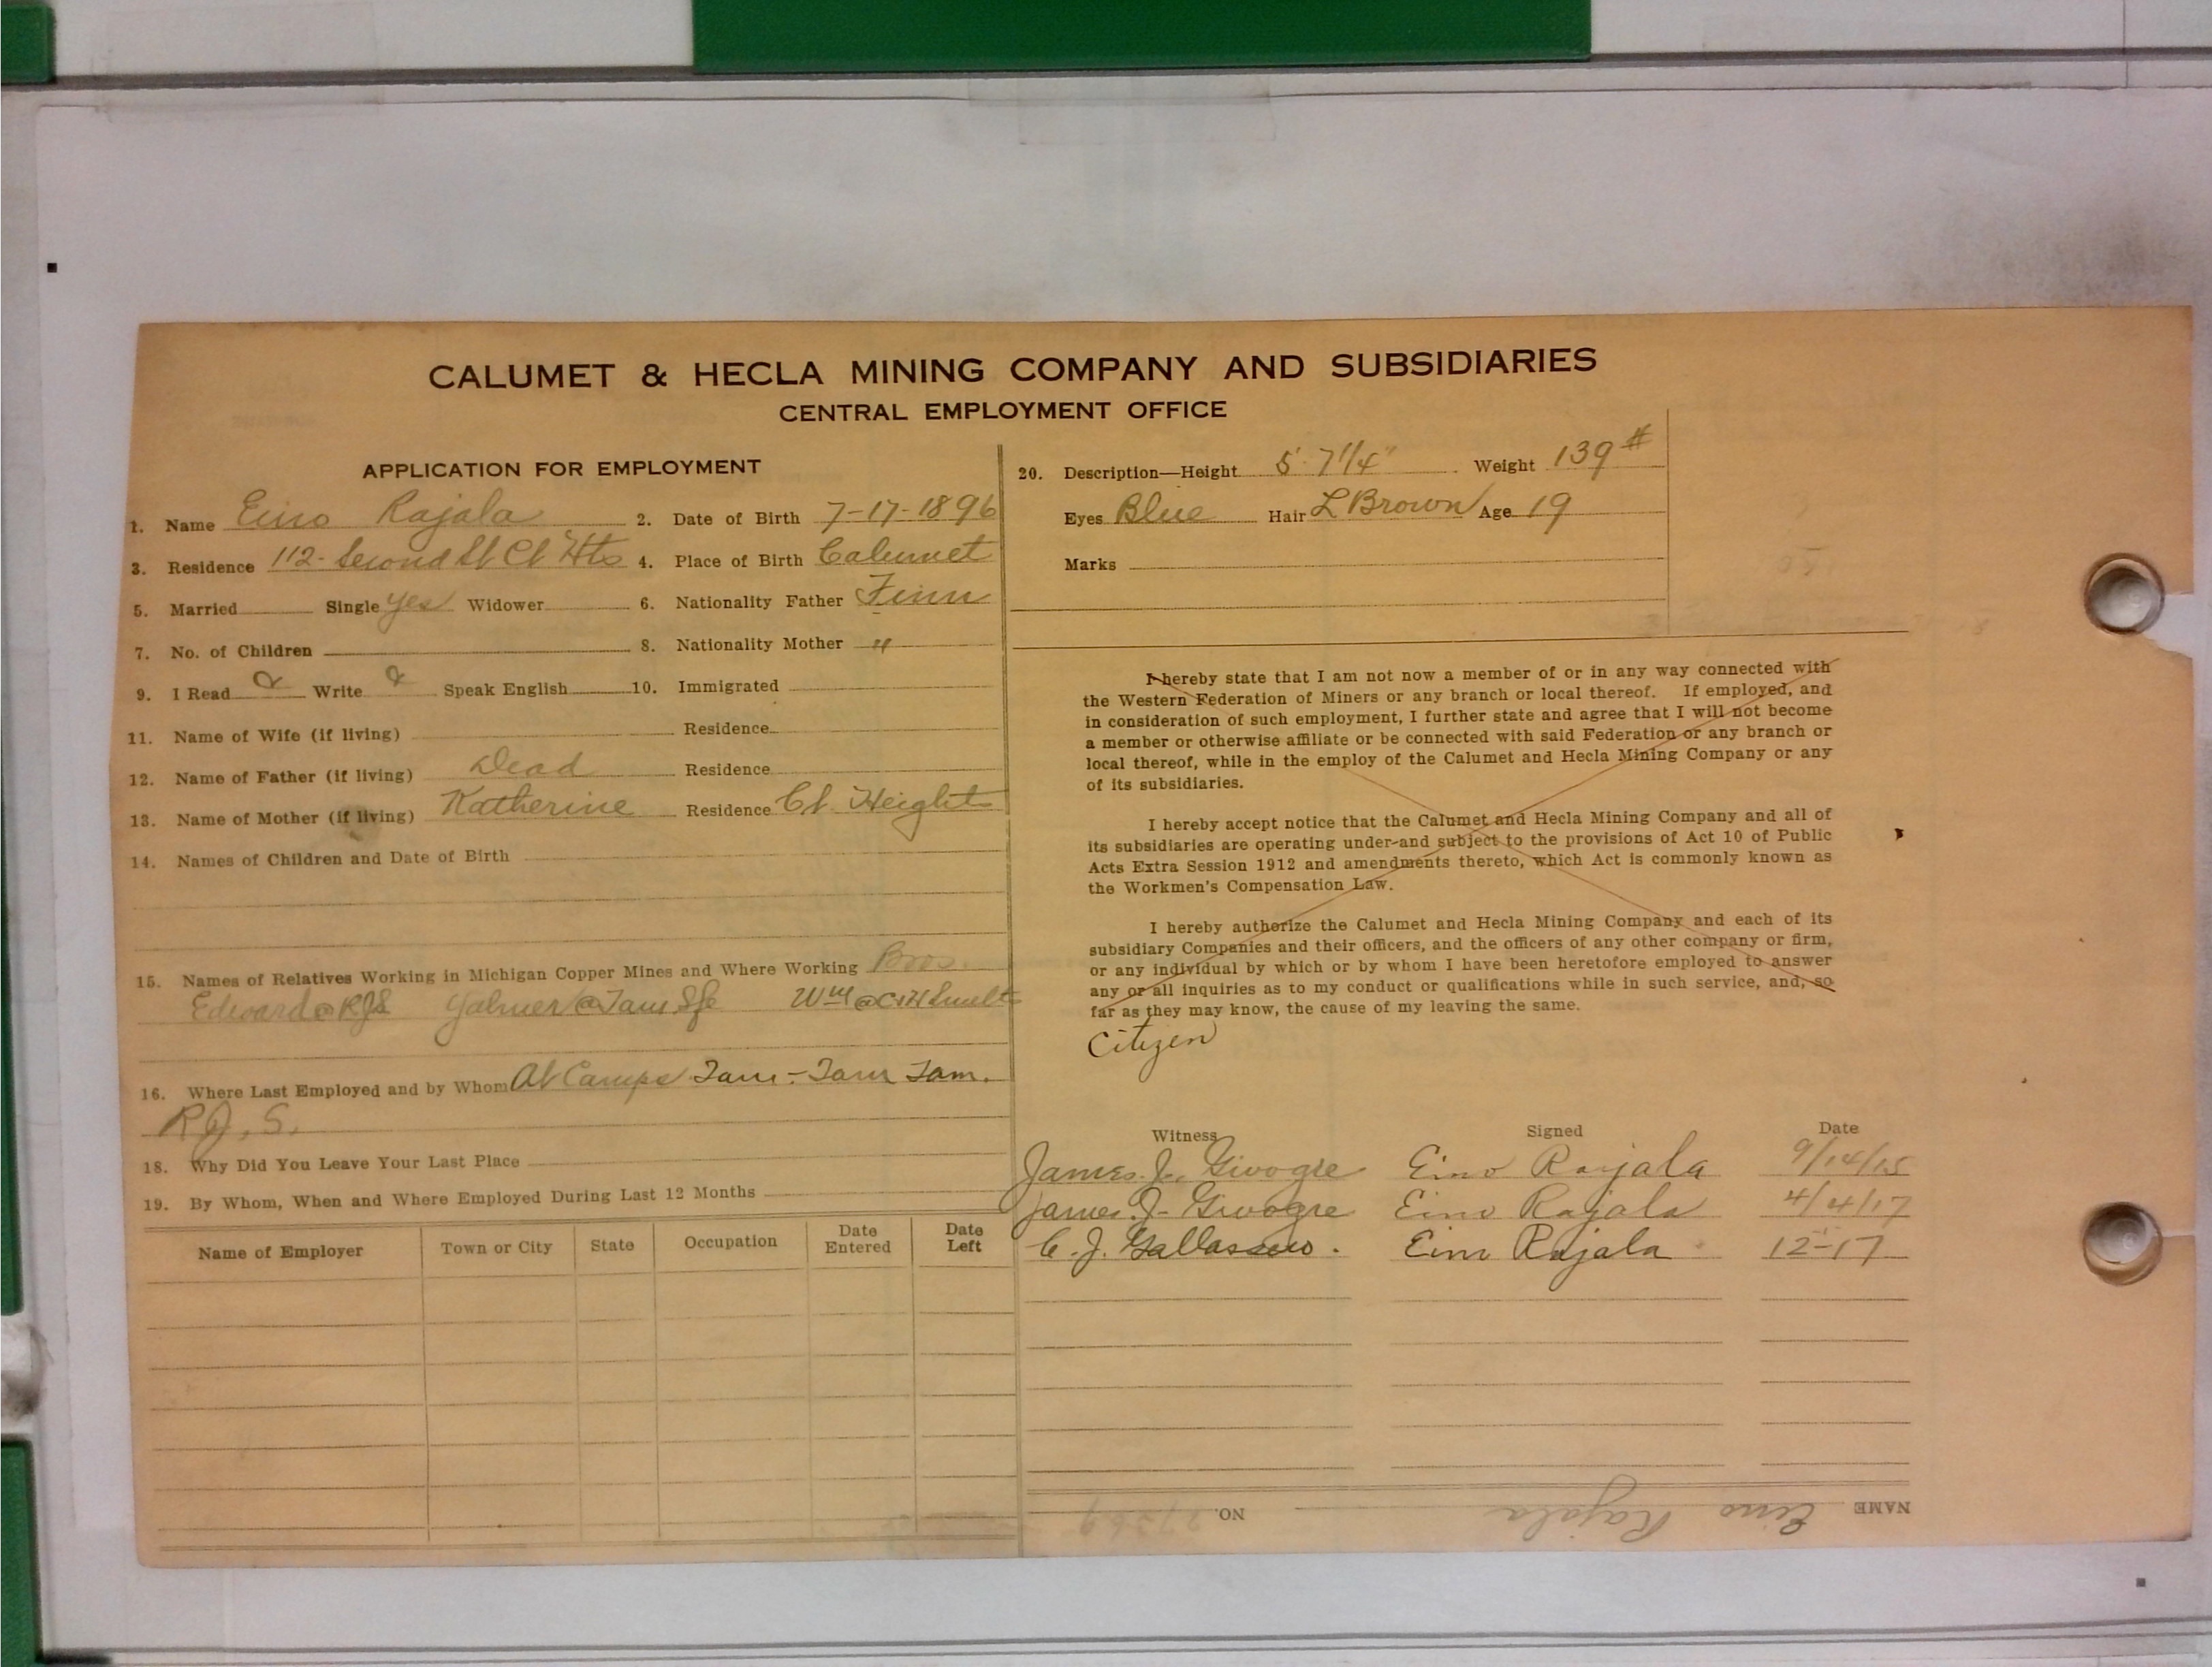 CALUMET & HECLA MINING COMPANY AND SUBSIDIARIES
CENTRAL EMPLOYMENT OFFICE
APPLICATION FOR EMPLOYMENT
1. Name Eino Rajala 2. Date of Birth 7-17-1896
3. Residence 112- Second St Cl Hts 4. Place of Birth Calumet
5. Married Single Yes Widower 6. Nationality Father Finn
7. No. of Children 8. Nationality Mother "
9. I Read Write Speak English 10. Immigrated
11. Name of Wife (if living) Residence
12. Name of Father (if living) Dead Residence
13. Name of Mother (if living) Katherine Residence Cl. Heights
14. Names of Children and Date of Birth
15. Names of Relatives Working in Michigan Copper Mines and Where Working Bros.
Edward @ RJS Yalmer @ Tam Wm @ C+H Smelt
16. Where Last Employed and by Whom At Camps Tam - Tam Tam.
R.J.S.
18. Why Did You Leave Your Last Place
19. By Whom, When and Where Employed During Last 12 Months
Name of Employer Town or City State Occupation Date Entered Date Left
20. Description—Height 5' 7 1/4" Weight 139 #
Eyes Blue Hair L Brown Age 19
Marks
I hereby state that I am not now a member of or in any way connected with
the Western Federation of Miners or any branch or local thereof. If employed, and
in consideration of such employment, I further state and agree that I will not become
a member or otherwise affiliate or be connected with said Federation or any branch or
local thereof, while in the employ of the Calumet and Hecla Mining Company or any
of its subsidiaries.
I hereby accept notice that the Calumet and Hecla Mining Company and all of
its subsidiaries are operating under and subject to the provisions of Act 10 of Public
Acts Extra Session 1912 and amendments thereto, which Act is commonly known as
the Workmen's Compensation Law.
I hereby authorize the Calumet and Hecla Mining Company and each of its
subsidiary Companies and their officers, and the officers of any other company or firm,
or any individual by which or by whom I have been heretofore employed to answer
any or all inquiries as to my conduct or qualifications while in such service, and, so
far as they may know, the cause of my leaving the same.
Citizen
Witness Signed Date
James J. Givogre Eino Rajala 9/14/15
James J. Givogre Eino Rajala 4/4/17
C. J. Eino Rajala 12-17
NAME Eino Rajala NO.